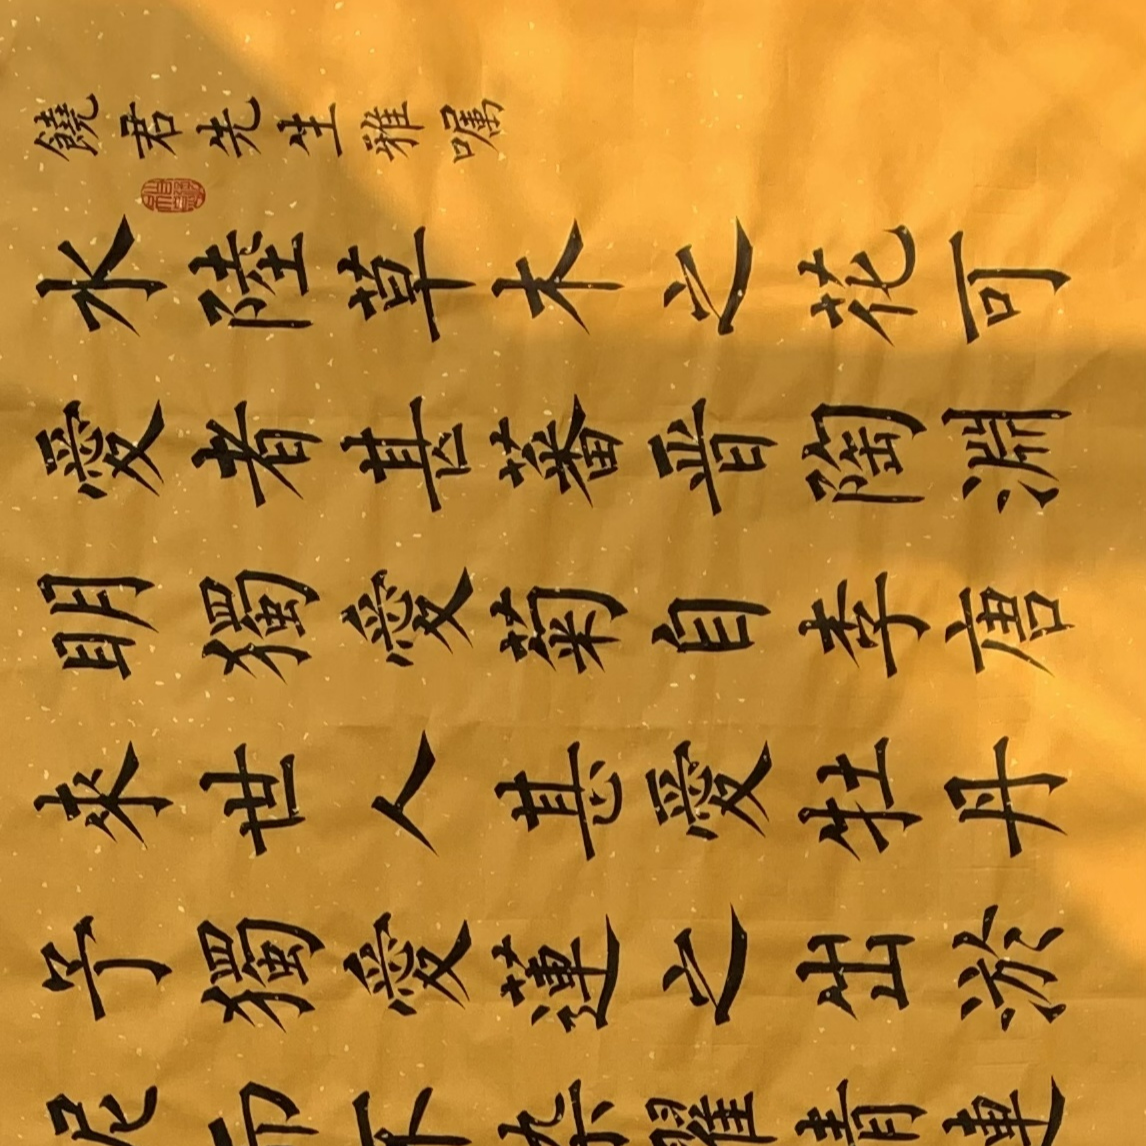 饒君先生雅嘱
水陸草木之花可
愛者甚蕃晋陶淵
明獨愛菊自李唐
來世人甚愛牡丹
予獨愛蓮之出淤
泥而不染濯清漣